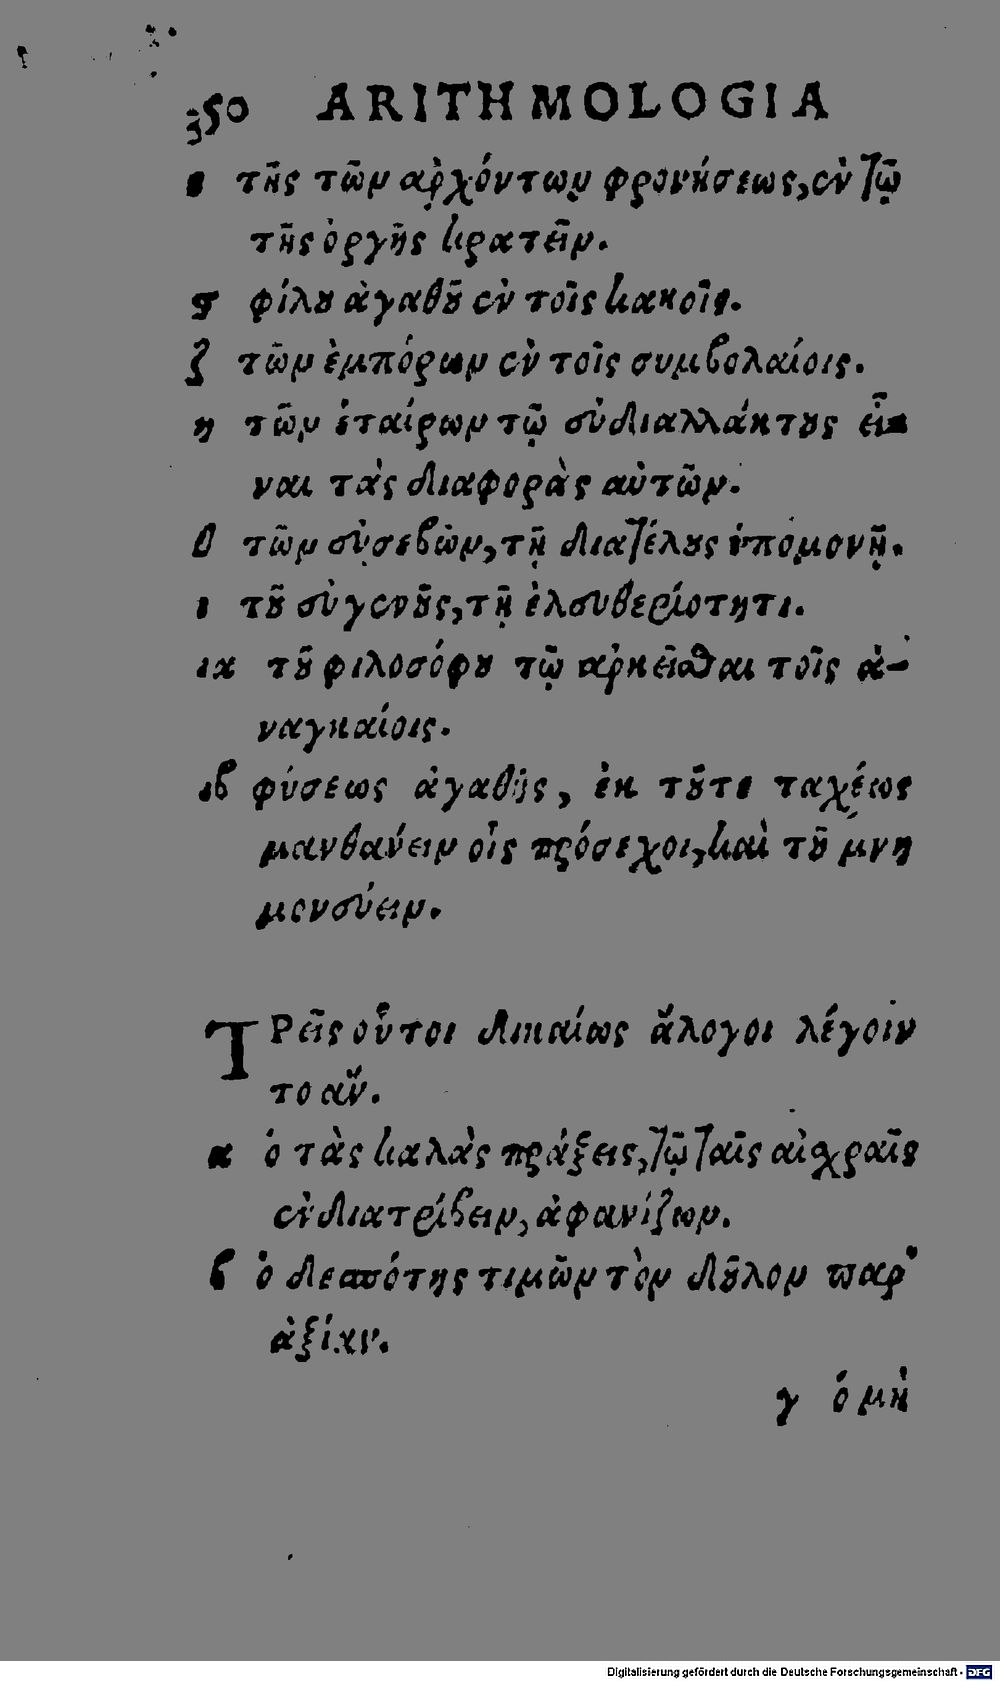 350 ARITHMOLOGIA
ε τῆς τῶν ἀρχόντων φρονήσεως, ἐν τῷ
τῆς ὀργῆς κρατεῖν.
ϛ φίλου ἀγαθοῦ ἐν τοῖς κακοῖς.
ζ τῶν ἐμπόρων ἐν τοῖς συμβολαίοις.
η τῶν ἑταίρων τῷ εὐδιαλλάκτους εἶ-
ναι τὰς διαφορὰς αὐτῶν.
θ τῶν εὐσεβῶν, τῇ διατέλους ὑπομονῇ.
ι τοῦ εὐγενοῦς, τῇ ἐλευθεριότητι.
ια τοῦ φιλοσόφου τῷ ἀρκεῖσθαι τοῖς ἀ-
ναγκαίοις.
ιβ φύσεως ἀγαθῆς, ἐκ τοῦτε ταχέως
μανθάνειν οἷς πρόσεχοι, καὶ τοῦ μνη
μονεύειν.
ΤΡεῖς οὗτοι δικαίως ἄλογοι λέγοιν
το ἄν.
α ὁ τὰς καλὰς πράξεις, τῷ ταῖς αἰσχραῖς
ἐνδιατρίβειν, ἀφανίζων.
β ὁ δεσπότης τιμῶν τὸν δοῦλον παρ'
ἀξίαν.
γ ὁ μὴ
Digitalisierung gefördert durch die Deutsche Forschungsgemeinschaft - DFG